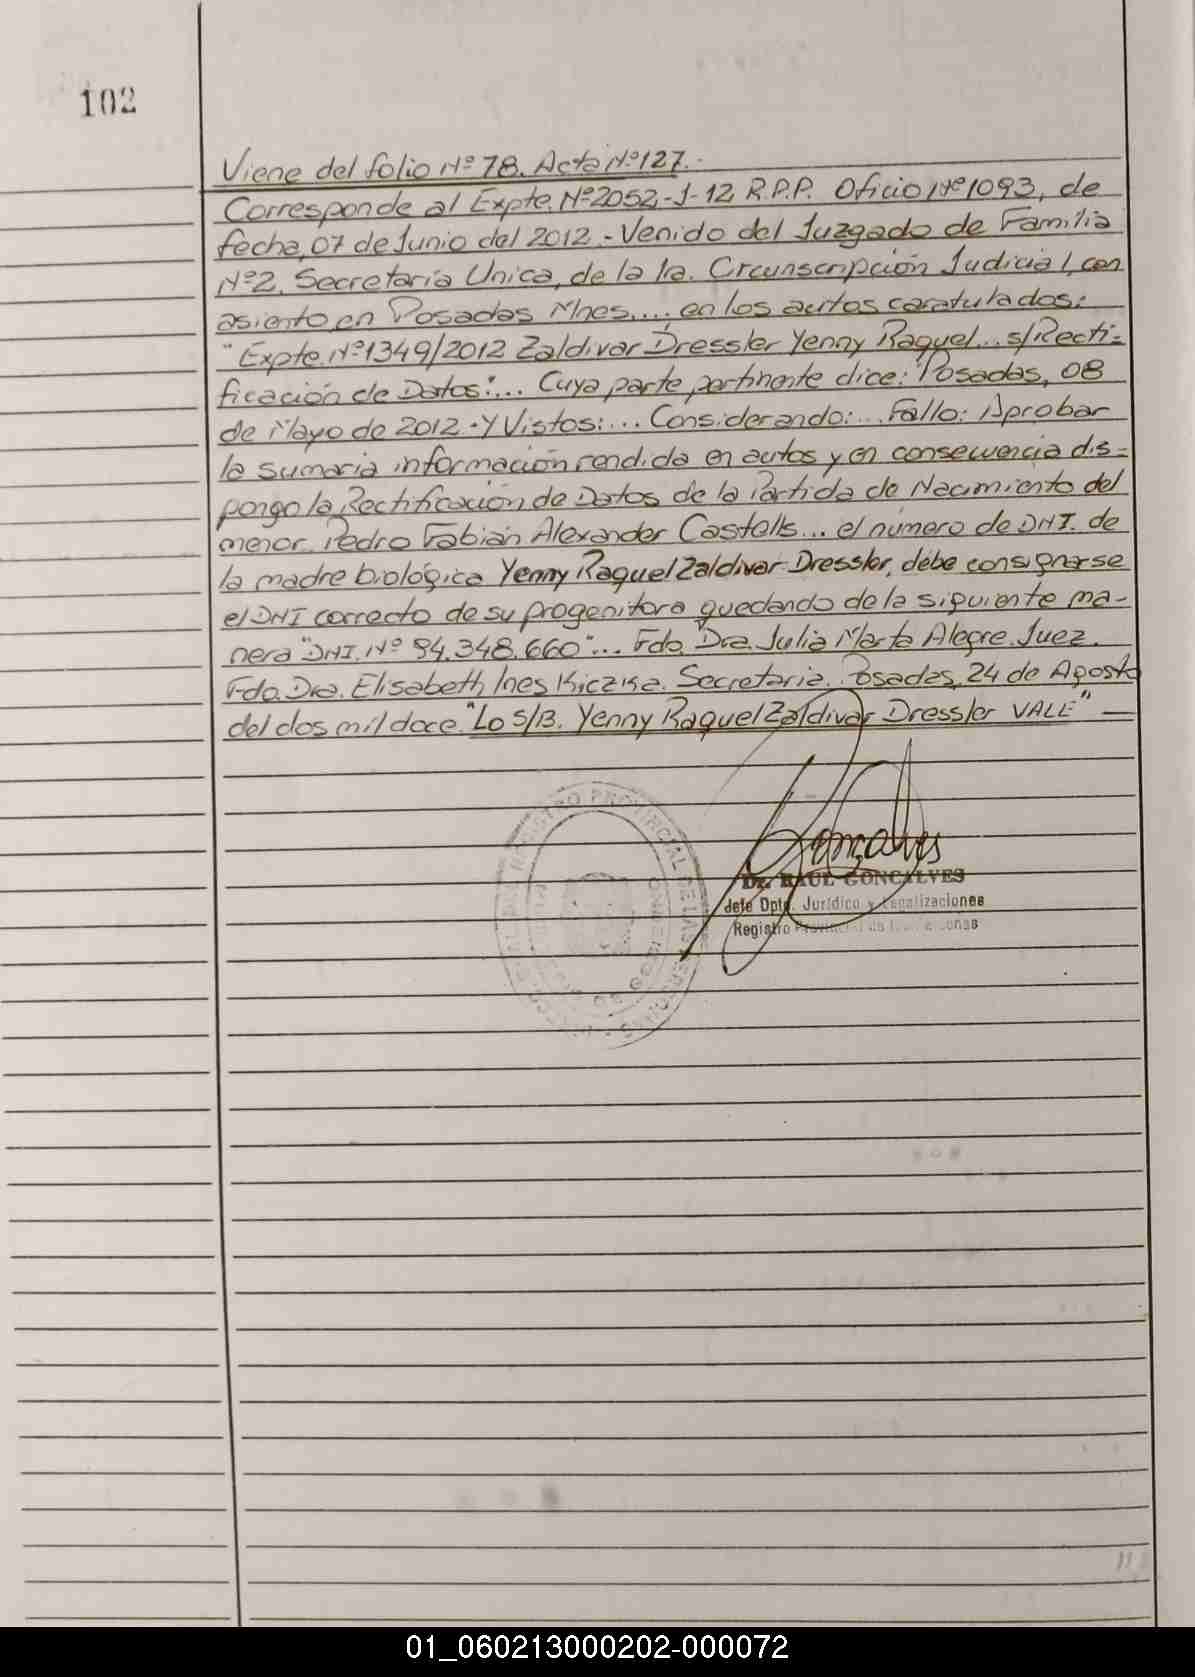 102
Viene del folio Nº 78. Acta Nº 127.-
Corresponde al Expte. Nº 2052-J-12 R.P.P. Oficio Nº 1093, de
fecha, 07 de Junio del 2012 - Venido del Juzgado de Familia
Nº 2. Secretaría Unica, de la 1ra. Circunscripción Judicial, con
asiento en Posadas Mnes.... en los autos caratulados:
"Expte. Nº 1349/2012 Zaldivar Dressler Yenny Raquel... s/Recti=
ficación de Datos:... Cuya parte pertinente dice: Posadas, 08
de Mayo de 2012 - Y Vistos:... Considerando:... Fallo: Aprobar
la sumaria información rendida en autos y en consecuencia dis=
pongo la Rectificación de Datos de la Partida de Nacimiento del
menor Pedro Fabián Alexander Castells... el número de DNI. de
la madre biológica Yenny Raquel Zaldivar Dressler, debe consignarse
el DNI correcto de su progenitora quedando de la siguiente ma-
nera "DNI. Nº 94.348.660"... Fdo. Dra. Julia Marta Alegre. Juez.
Fdo. Dra. Elisabeth Ines Kiczka. Secretaria. Posadas, 24 de Agosto
del dos mil doce. "Lo S/B. Yenny Raquel Zaldivar Dressler VALE" —
Goncalves
Dr. RAUL GONCALVES
Jefe Dpto. Jurídico y Legalizaciones
Registro Provincial de las Personas
REGISTRO PROVINCIAL DE LAS PERSONAS
01_060213000202-000072